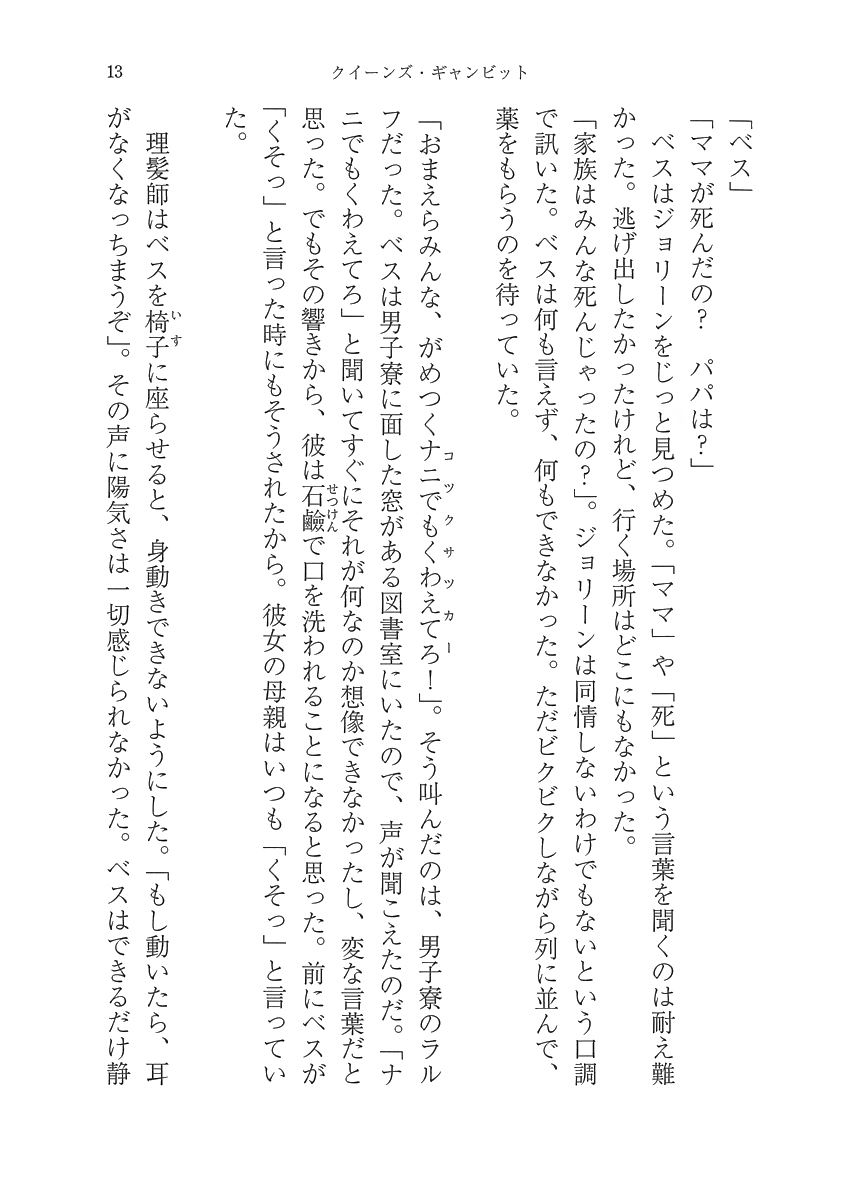 13
クイーンズ・ギャンビット
「ベス」
「ママが死んだの？　パパは？」
　ベスはジョリーンをじっと見つめた。「ママ」や「死」という言葉を聞くのは耐え難
かった。逃げ出したかったけれど、行く場所はどこにもなかった。
「家族はみんな死んじゃったの？」。ジョリーンは同情しないわけでもないという口調
で訊いた。ベスは何も言えず、何もできなかった。ただビクビクしながら列に並んで、
薬をもらうのを待っていた。
「おまえらみんな、がめつくナニでもくわえてろ！」。そう叫んだのは、男子寮のラル
コックサッカー
フだった。ベスは男子寮に面した窓がある図書室にいたので、声が聞こえたのだ。「ナ
ニでもくわえてろ」と聞いてすぐにそれが何なのか想像できなかったし、変な言葉だと
思った。でもその響きから、彼は石鹼で口を洗われることになると思った。前にベスが
せつけん
「くそっ」と言った時にもそうされたから。彼女の母親はいつも「くそっ」と言ってい
た。
　理髪師はベスを椅子に座らせると、身動きできないようにした。「もし動いたら、耳
いす
がなくなっちまうぞ」。その声に陽気さは一切感じられなかった。ベスはできるだけ静